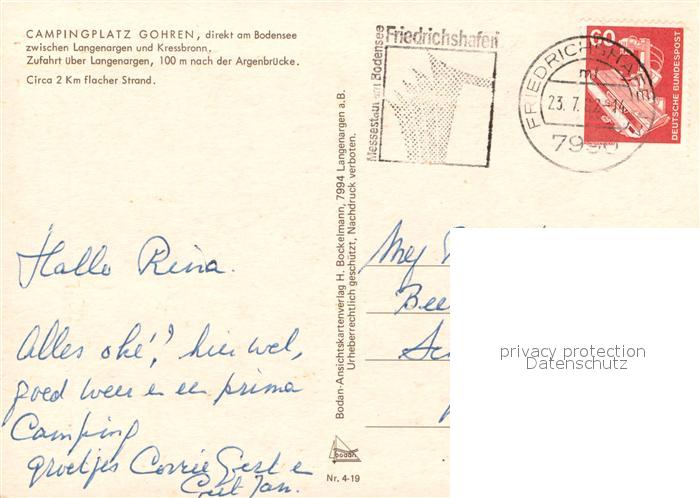 CAMPINGPLATZ GOHREN, direkt am Bodensee
zwischen Langenargen und Kressbronn.
Zufahrt über Langenargen, 100 m nach der Argenbrücke.
Circa 2 Km flacher Strand.
Friedrichshafen
Messestadt am Bodensee
FRIEDRICHSHAFEN
23.7.
7990
60
DEUTSCHE BUNDESPOST
Hallo Rina.
Alles oké!? hier wel,
goed weer en een prima
Camping
groetjes Corrie Gert e
Jan.
Bodan-Ansichtskartenverlag H. Bockelmann, 7994 Langenargen a.B.
Urheberrechtlich geschützt, Nachdruck verboten.
bodan
Nr. 4-19
Mej
Bee
privacy protection
Datenschutz